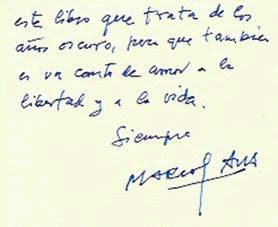 este libro que trata de los
años oscuro, pero que también
es un canto de amor a la
libertad y a la vida.
Siempre
Marcos Ana